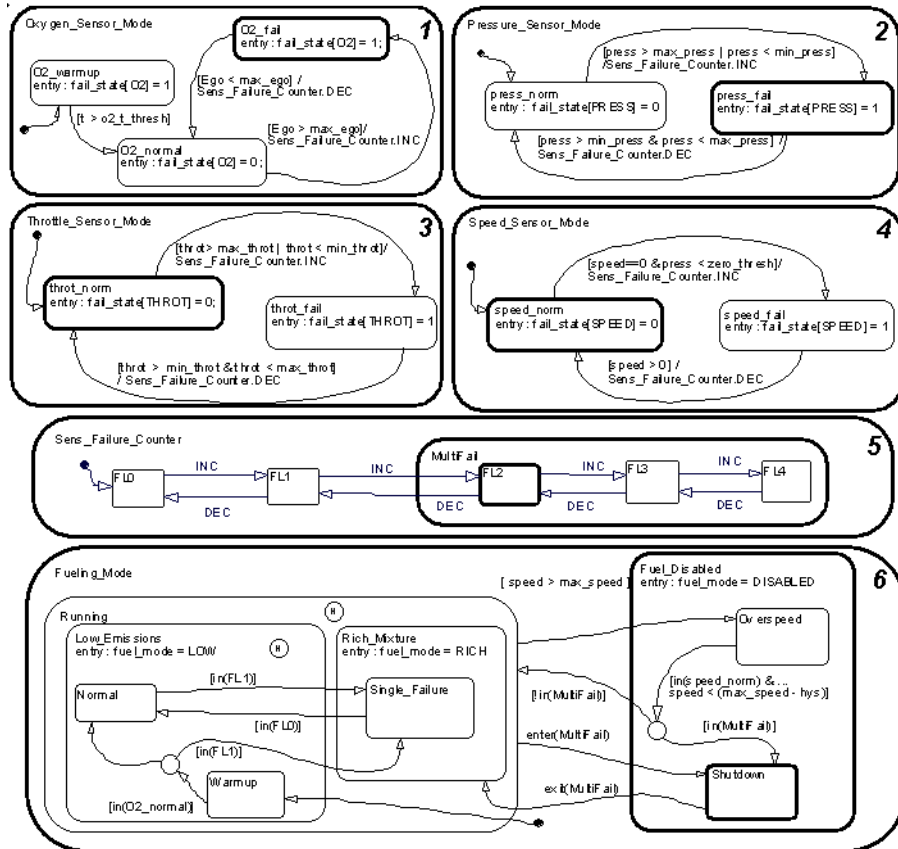 Oxygen_Sensor_Mode
1
O2_fail
entry : fail_state[O2] = 1;
O2_warmup
entry : fail_state[O2] = 1
[Ego < max_ego] /
Sens_Failure_Counter.DEC
[t > o2_t_thresh]
[Ego > max_ego]/
Sens_Failure_Counter.INC
O2_normal
entry : fail_state[O2] = 0;
Pressure_Sensor_Mode
2
[press > max_press | press < min_press]
/Sens_Failure_Counter.INC
press_norm
entry : fail_state[PRESS] = 0
press_fail
entry : fail_state[PRESS] = 1
[press > min_press & press < max_press] /
Sens_Failure_Counter.DEC
Throttle_Sensor_Mode
3
[throt> max_throt | throt < min_throt]/
Sens_Failure_Counter.INC
throt_norm
entry : fail_state[THROT] = 0;
throt_fail
entry : fail_state[THROT] = 1
[throt > min_throt &throt < max_throt]
/ Sens_Failure_Counter.DEC
Speed_Sensor_Mode
4
[speed==0 & press < zero_thresh]/
Sens_Failure_Counter.INC
speed_norm
entry : fail_state[SPEED] = 0
speed_fail
entry : fail_state[SPEED] = 1
[speed > 0] /
Sens_Failure_Counter.DEC
Sens_Failure_Counter
5
MultiFail
FL0
INC
DEC
FL1
INC
DEC
FL2
INC
DEC
FL3
INC
DEC
FL4
Fueling_Mode
6
[ speed > max_speed ]
Fuel_Disabled
entry : fuel_mode = DISABLED
Running
H
Low_Emissions
entry : fuel_mode = LOW
H
Rich_Mixture
entry : fuel_mode = RICH
Overspeed
Normal
[in(FL1)]
Single_Failure
[in(FL0)]
[in(speed_norm) & ...
speed < (max_speed - hys)]
[!in(MultiFail)]
[in(MultiFail)]
[in(FL1)]
enter(MultiFail)
Warmup
Shutdown
exit(MultiFail)
[in(O2_normal)]